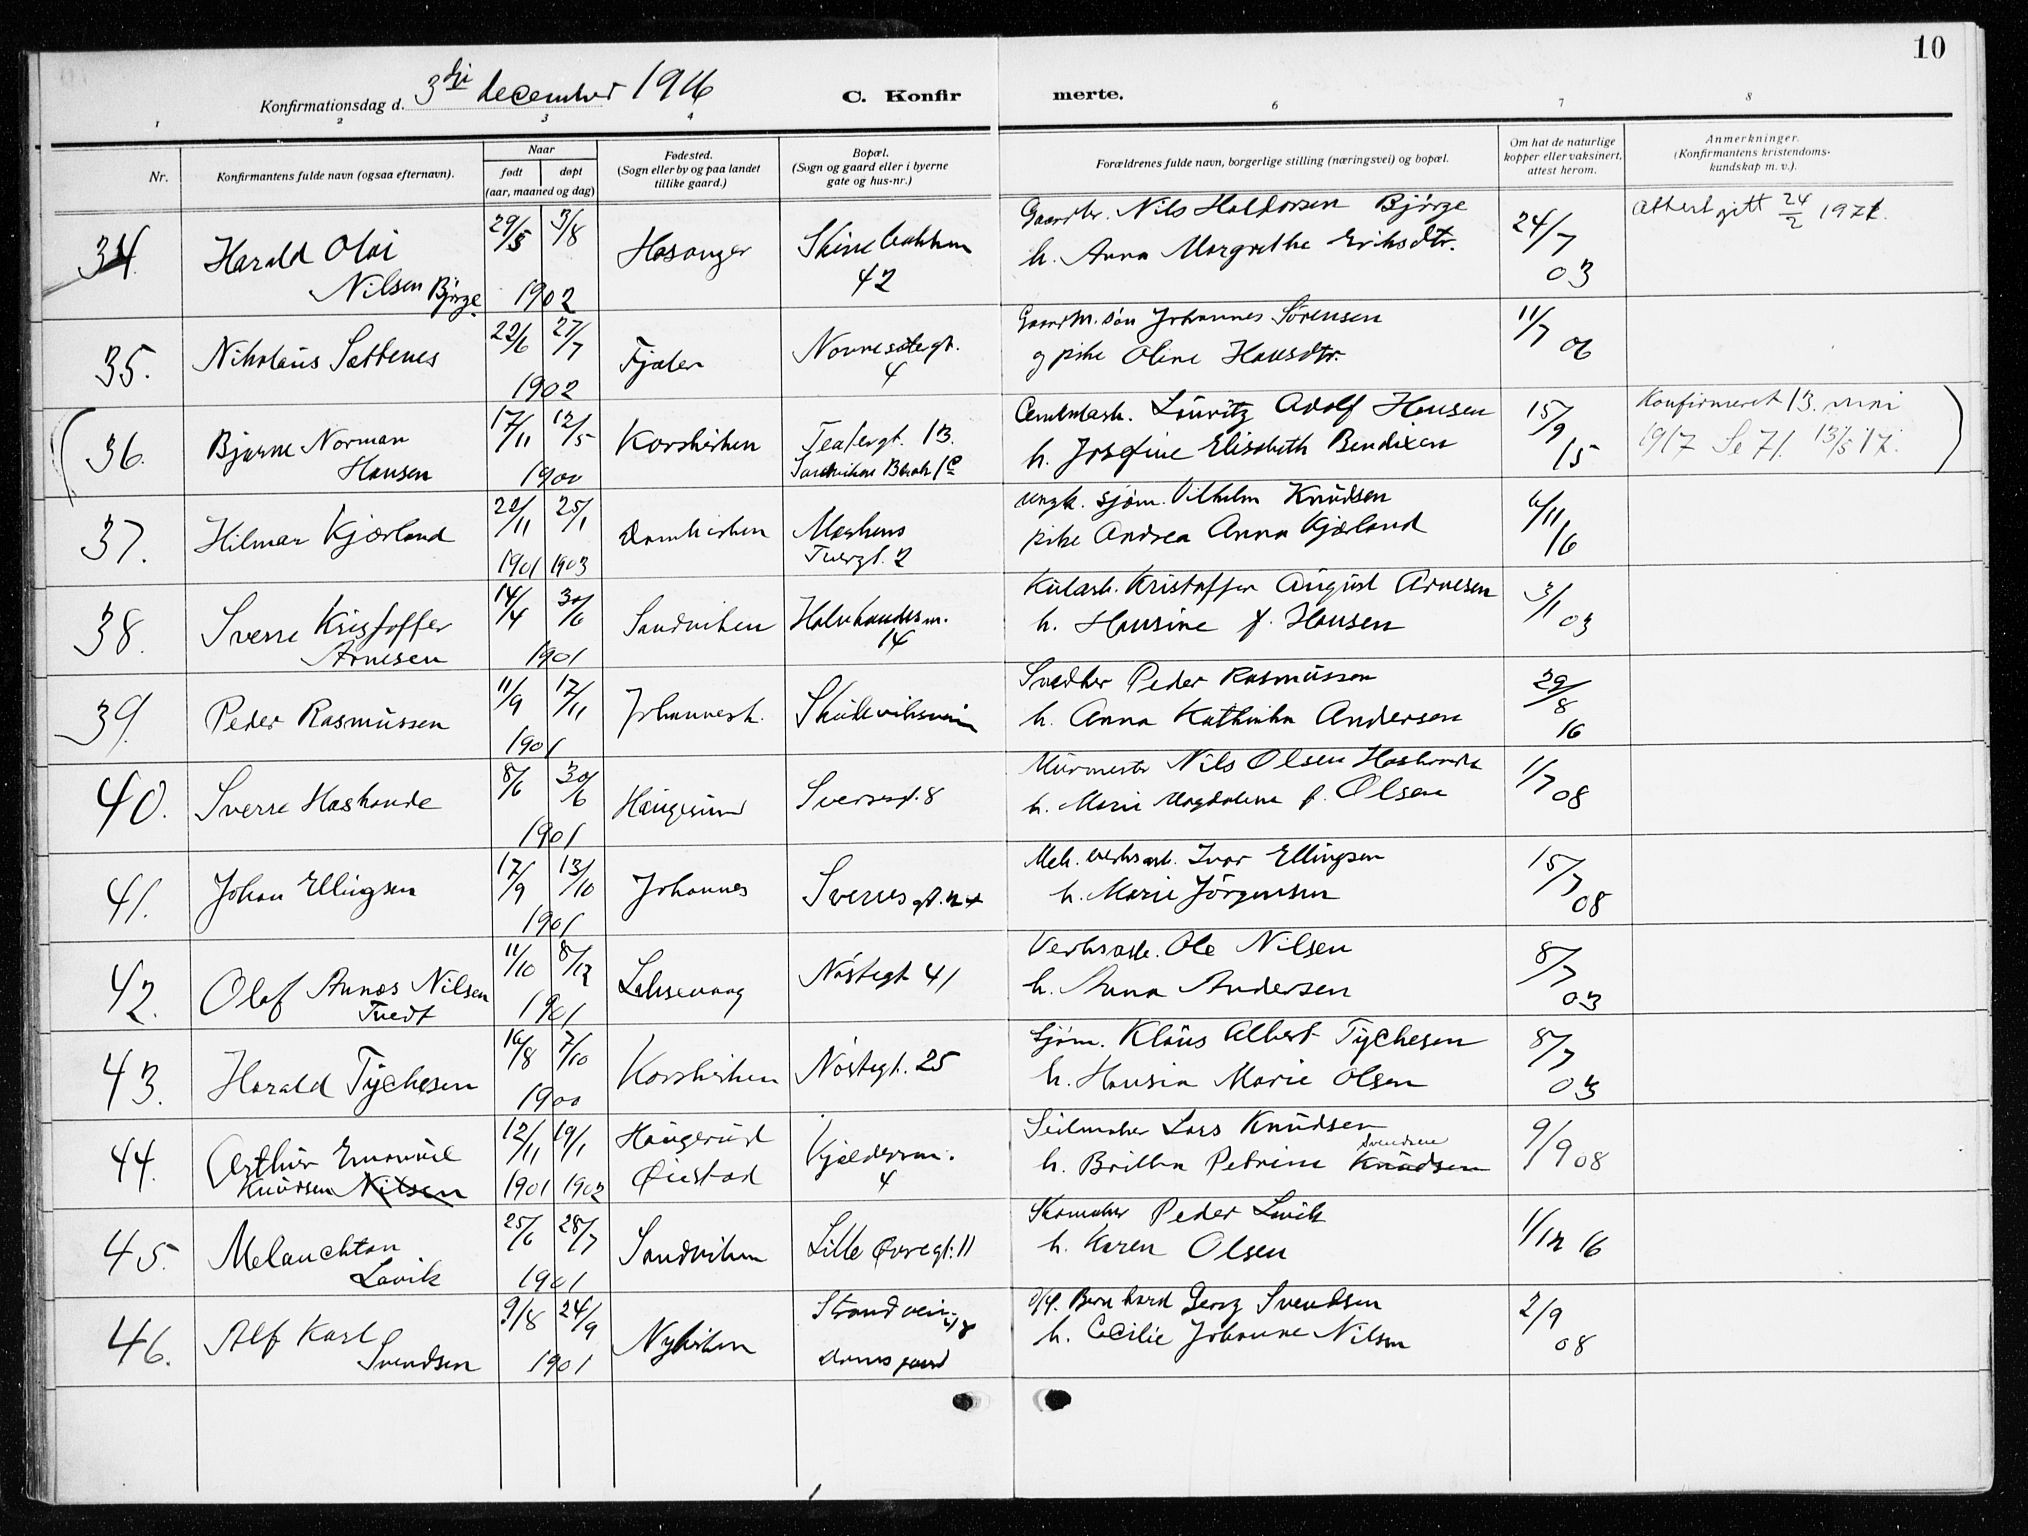 10
Konfirmationsdag d. 3die december 1916
C. Konfir merte.
1 2 3 4 6 7 8
Nr.
Konfirmantens fulde navn (ogsaa efternavn).
Naar
født døpt
(aar, maaned og dag)
Fødested.
(Sogn eller by og paa landet
tillike gaard.)
Bopæl.
(Sogn og gaard eller i byerne
gate og hus-nr.)
Forældrenes fulde navn, borgerlige stilling (næringsvei) og bopæl.
Om hat de naturlige
kopper eller vaksinert,
attest herom.
Anmerkninger.
(Konfirmantens kristendoms-
kundskap m. v.).
34. Harald Olai
Nilsen Bjørge
29/5 3/8
1902
Hosanger
42
Nils Haldorsen Bjørge
h. Anna Margrethe Eriksdtr.
24/7
03
Attest gitt 24/2 1971.
35. Nikolaus Sættenes
22/6 27/7
1902
Fjaler
Nonnesætergt.
4
Gaardm. søn Johannes Sørensen
og pike Oline Hansdtr.
11/7 06
36. Bjarne Norman
Hansen
17/11 12/5
1900
Korskirken
Teatergt. 13.
Cementarb. Lauritz Adolf Hansen
h. Josefine Elisabeth Bendixen
15/9
15
Konfirmeret 13. mai
1917 Se 71. 13/5 17.
37. Hilmar Kjærland
22/11 25/1
1901 1903
Domkirken
Markens
Tvergt. 2
ungk. sjøm. Vilhelm Knudsen
pike Andrea Anna Kjærland
6/11
16
38. Sverre Kristoffer
Arnesen
14/4 30/6
1901
Sandviken
14
Kularb. Kristoffer August Arnesen
h. Hansine f. Hansen
3/1 03
39. Peder Rasmussen
11/9 17/11
1901
Johannesk.
Skuteviksveien
Peder Rasmussen
h. Anna Kathinka Andersen
29/8
16
40. Sverre Haskonde
8/6 30/6
1901
Haugesund
Sverresgt. 8
Murmester Nils Olsen Haskonde
h. Marie Magdalene f. Olsen
1/7 08
41. Johan Ellingsen
17/9 13/10
1901
Johannes
Sverresgt. 24
Mek. verksarb. Ivar Ellingsen
h. Marie Jørgensen
15/7
08
42. Olaf Annæs Nilsen
Tvedt
11/10 8/12
1901
Laksevaag
Nøstegt 41
Verksarb. Ole Nilsen
h. Anna Andersen
8/7
03
43. Harald Tychesen
16/8 7/10
1900
Korskirken
Nøstegt. 25
Sjøm. Klaus Albert Tychesen
h. Hansia Marie Olsen
8/7
03
44. Arthur Emanuel
Knudsen Nilsen
12/11 19/1
1901 1902
Haugerud
Øiestad
Kjeldersm.
4
Seilmaker Lars Knudsen
Svendsen
h. Britha Petrine Knudsen
9/9 08
45. Melanchton
Lavik
25/6 28/7
1901
Sandviken
Lille Øvregt. 11
Skomaker Peder Lavik
h. Karen Olsen
1/12 16
46. Alf Karl
Svendsen
9/8 24/9
1901
Nykirken
Strandveien
Bernhard Georg Svendsen
h. Cecilie Johanne Nilsen
2/9
08